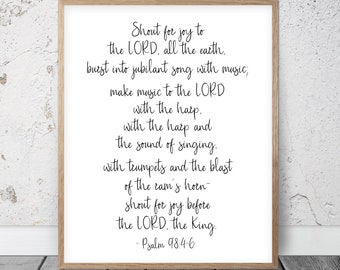 Shout for joy to
the LORD, all the earth,
burst into jubilant song with music;
make music to the LORD
with the harp,
with the harp and
the sound of singing,
with trumpets and the blast
of the ram's horn-
shout for joy before
the LORD, the King.
- Psalm 98:4-6